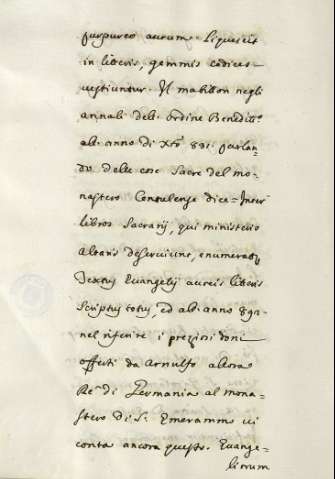 purpureo aurum. Liquescit
in literis, gemmis codices
vestiuntur. Il mabillon negli
annali dell. ordine Benedittº
all. anno di Xtº 831. parlan=
do delle cose Sacre del mo=
nastero Centulense dice = Inter
libros Sacrarij, qui ministerio
altaris deserviunt, enumeratur
Textus Evangelij aureis literis
Scriptus totus, ed all. anno 891.
nel riferire i preziosi doni
offerti da Arnulfo allora
Re di Germania al mona=
stero di S. Emerammo vi
conta ancora questo. Evange=
liorum